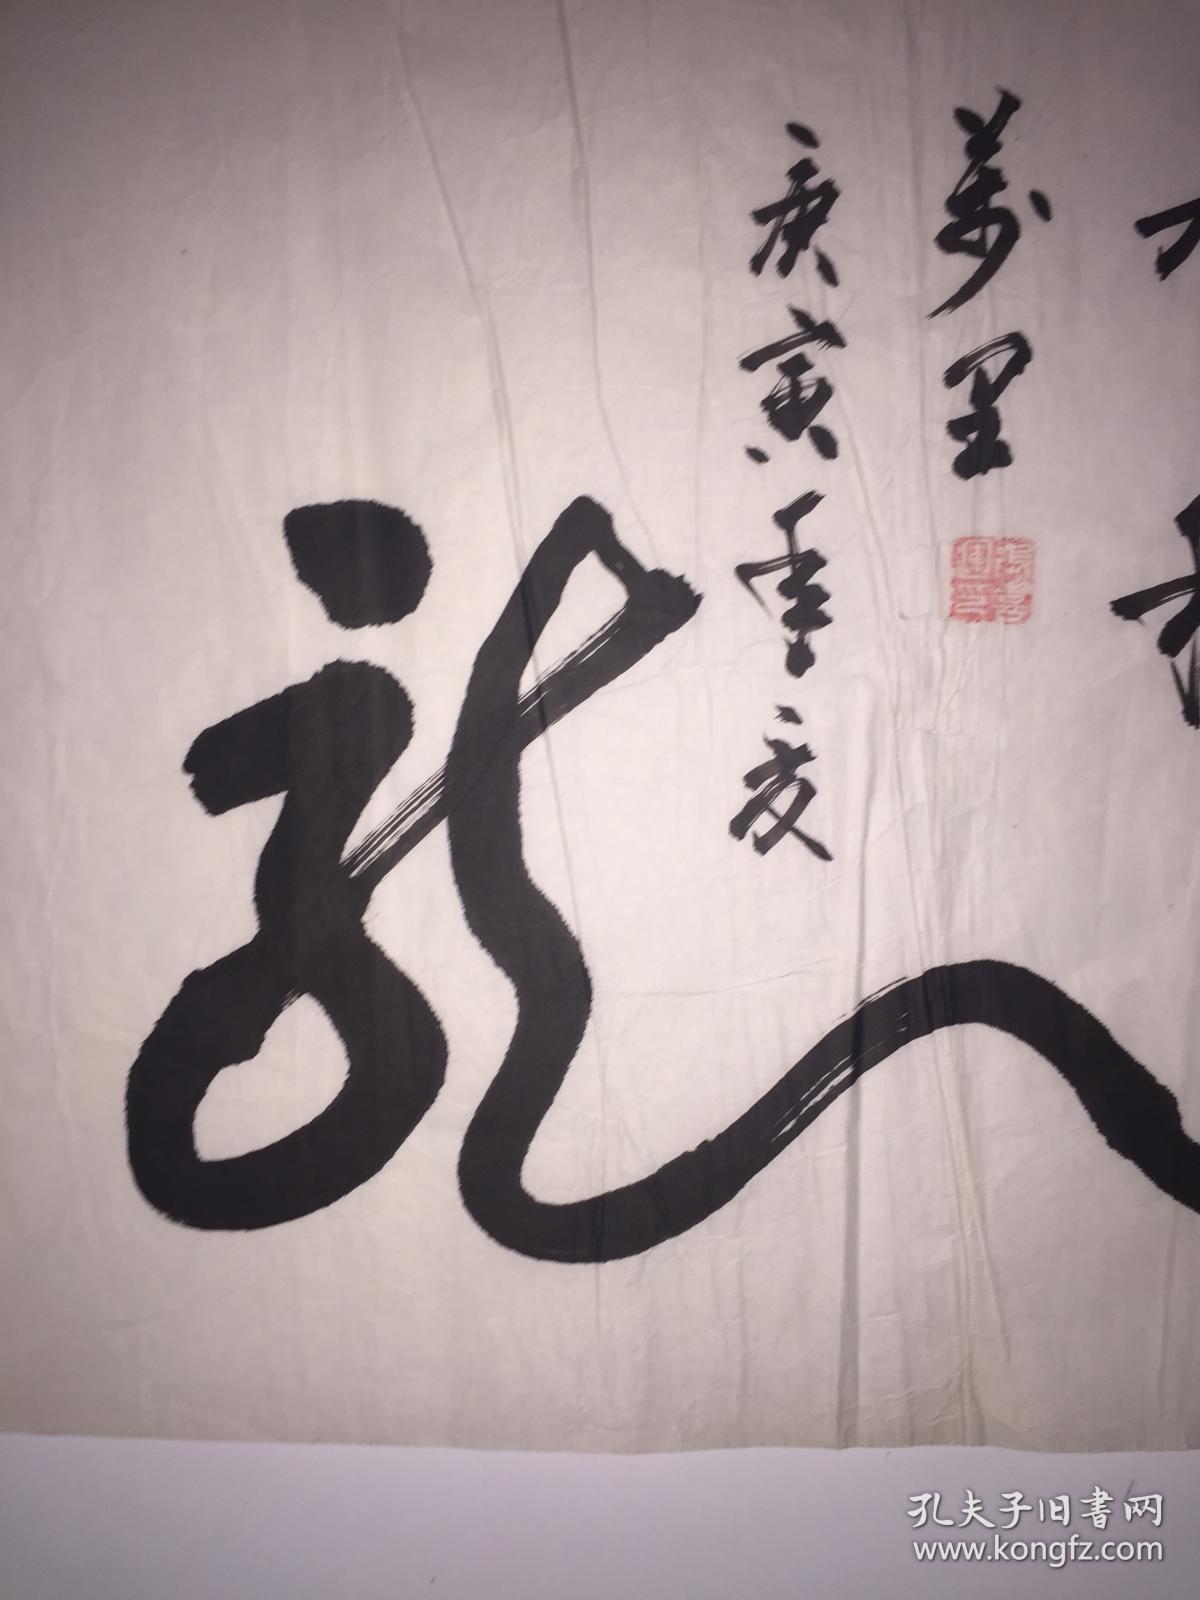 萬里
庚寅年夏
龍
孔夫子旧书网
www.kongfz.com